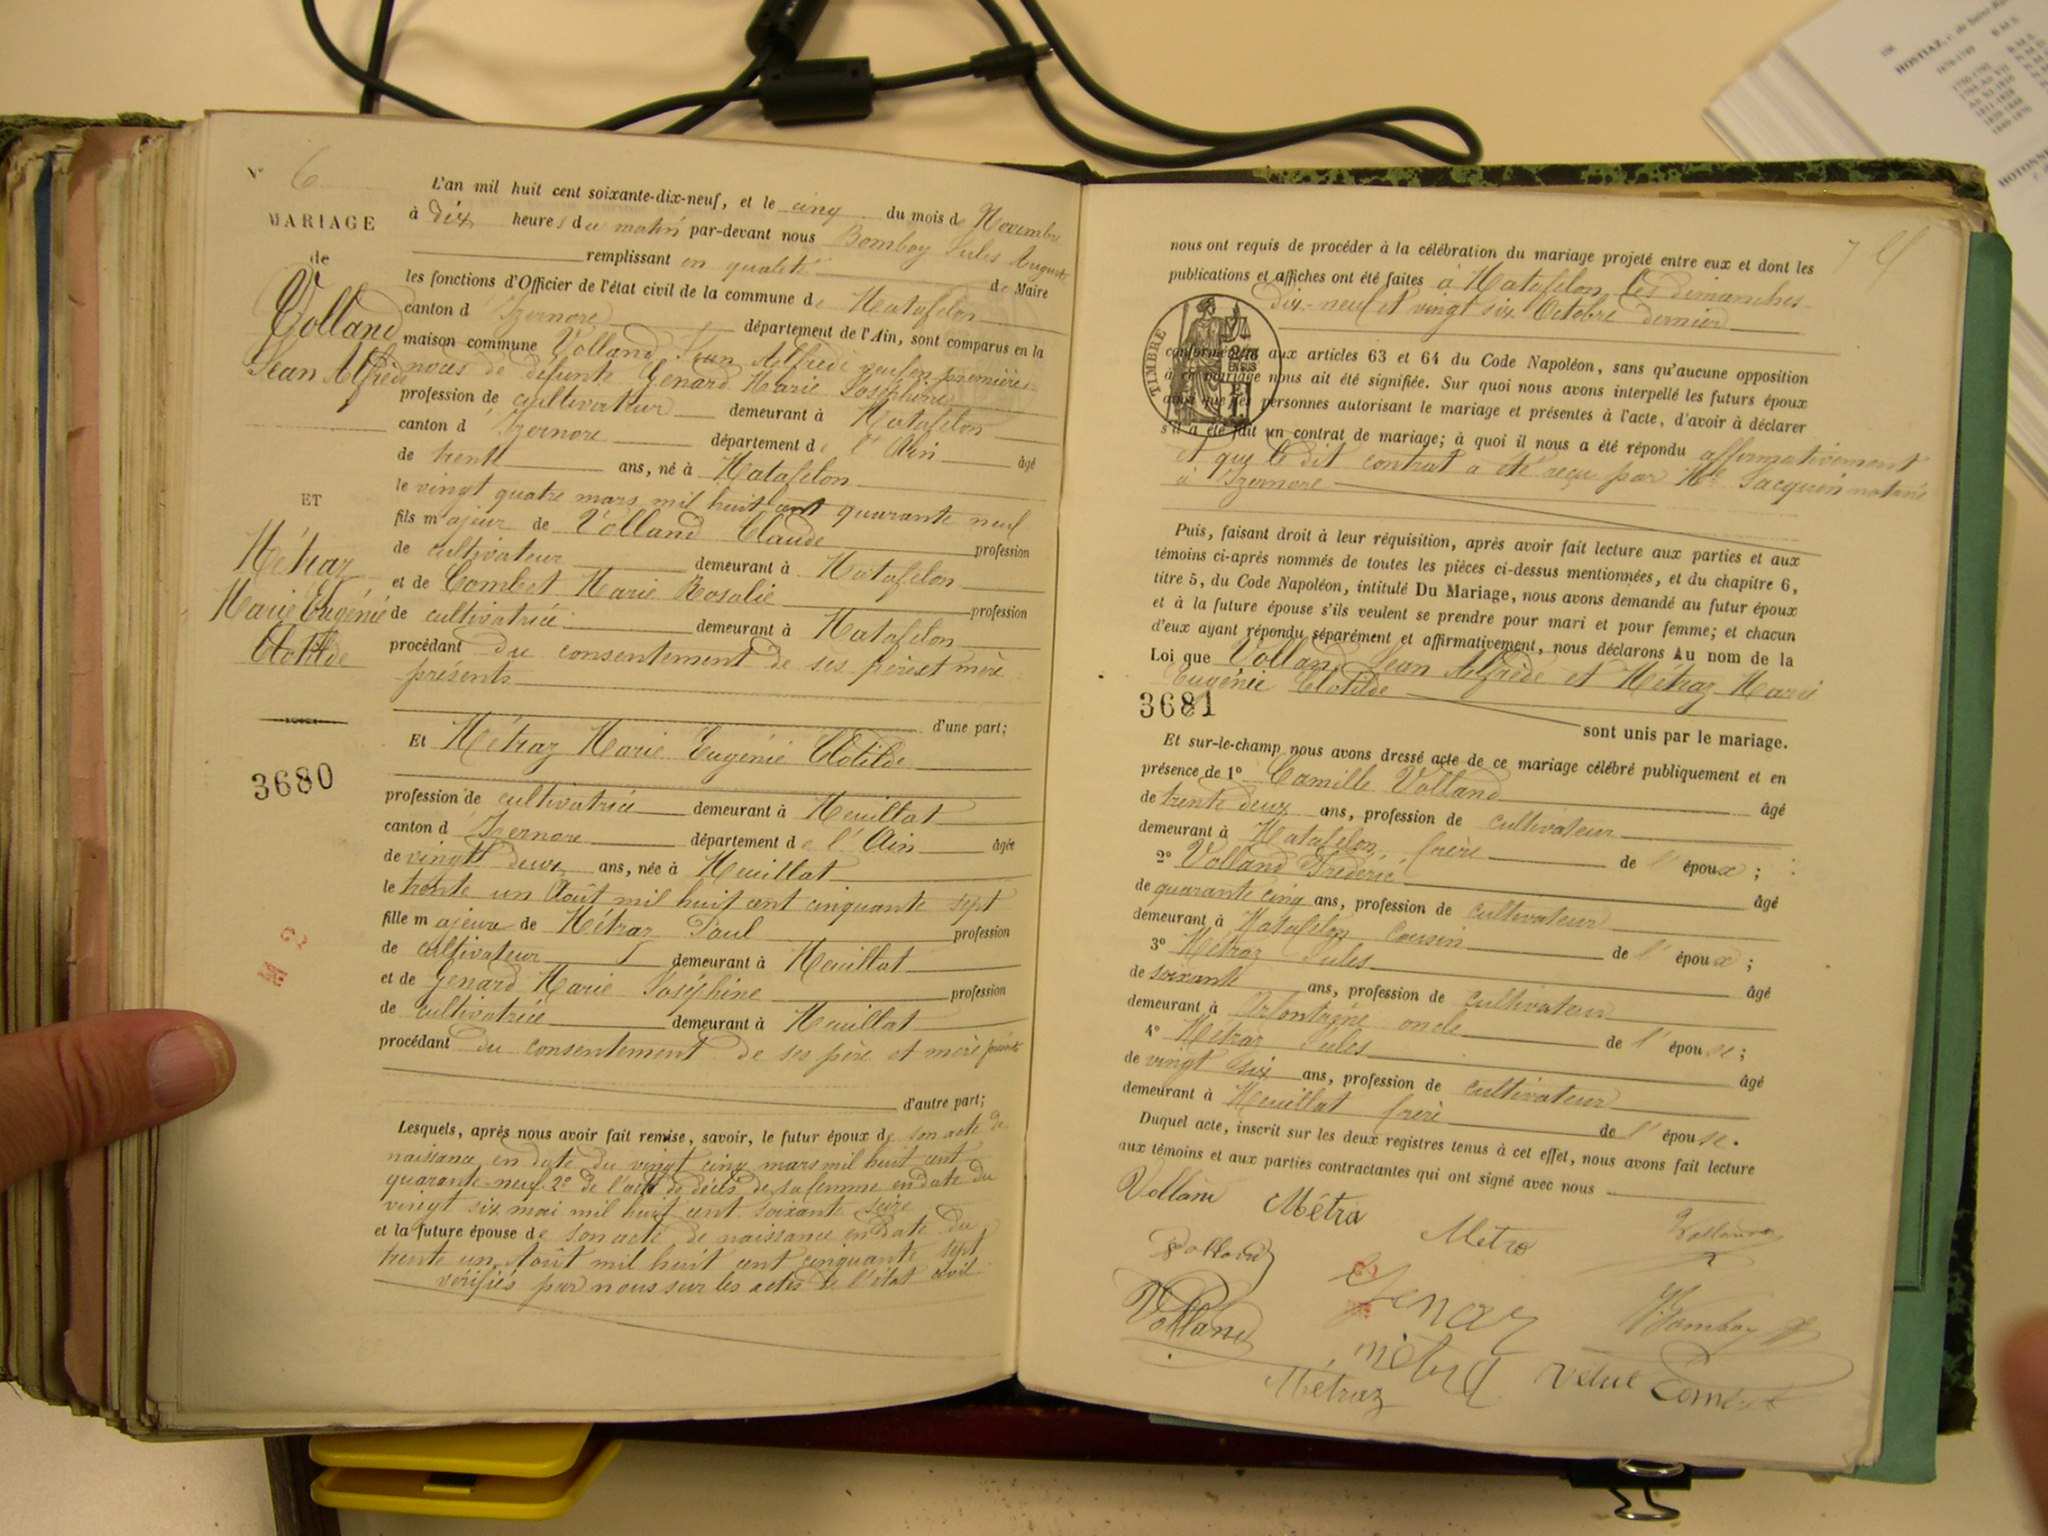 N° 6
MARIAGE
de
Volland
Jean Alfrède
ET
Métraz
Marie Eugénie
Clotilde
3680
L'an mil huit cent soixante-dix-neuf, et le cinq du mois de Novembre
à dix heures du matin par-devant nous Bomboy Jules Auguste
remplissant en qualité de Maire
les fonctions d'Officier de l'état civil de la commune de Matafelon
canton d'Izernore département de l'Ain, sont comparus en la
maison commune Volland Jean Alfrède veuf en premières
noces de défunte Genard Marie Joséphine
profession de cultivateur demeurant à Matafelon
canton d'Izernore département de l'Ain âgé
de trente ans, né à Matafelon
le vingt quatre mars mil huit cent quarante neuf
fils majeur de Volland Claude profession
de cultivateur demeurant à Matafelon
et de Combet Marie Rosalie profession
de cultivatrice demeurant à Matafelon
procédant du consentement de ses père et mère
présents
d'une part;
Et Métraz Marie Eugénie Clotilde
profession de cultivatrice demeurant à Heuillat
canton d'Izernore département de l'Ain âgée
de vingt deux ans, née à Heuillat
le trente un Août mil huit cent cinquante sept
fille majeure de Métraz Paul profession
de cultivateur demeurant à Heuillat
et de Genard Marie Joséphine profession
de cultivatrice demeurant à Heuillat
procédant du consentement de ses père et mère présents
d'autre part;
Lesquels, après nous avoir fait remise, savoir, le futur époux de son acte de
naissance en date du vingt cinq mars mil huit cent
quarante-neuf 2° de l'acte de décès de sa femme en date du
vingt six mai mil huit cent soixante seize
et la future épouse de son acte de naissance en date du
trente un Août mil huit cent cinquante sept
vérifiés par nous sur les actes de l'état civil
nous ont requis de procéder à la célébration du mariage projeté entre eux et dont les
publications et affiches ont été faites à Matafelon les dimanches
dix-neuf et vingt six Octobre dernier
TIMBRE
conformément aux articles 63 et 64 du Code Napoléon, sans qu'aucune opposition
à ce mariage nous ait été signifiée. Sur quoi nous avons interpellé les futurs époux
ainsi que les personnes autorisant le mariage et présentes à l'acte, d'avoir à déclarer
s'il a été fait un contrat de mariage; à quoi il nous a été répondu affirmativement
et que le dit contrat a été reçu par Me Jacquin notaire
à Izernore
Puis, faisant droit à leur réquisition, après avoir fait lecture aux parties et aux
témoins ci-après nommés de toutes les pièces ci-dessus mentionnées, et du chapitre 6,
titre 5, du Code Napoléon, intitulé Du Mariage, nous avons demandé au futur époux
et à la future épouse s'ils veulent se prendre pour mari et pour femme; et chacun
d'eux ayant répondu séparément et affirmativement, nous déclarons Au nom de la
Loi que Volland Jean Alfrède et Métraz Marie
Eugénie Clotilde
3681
sont unis par le mariage.
Et sur-le-champ nous avons dressé acte de ce mariage célébré publiquement et en
présence de 1° Camille Volland âgé
de trente deux ans, profession de cultivateur
demeurant à Matafelon frère de l'époux;
2° Volland Frédéric âgé
de quarante cinq ans, profession de cultivateur
demeurant à Matafelon cousin de l'époux;
3° Métraz Jules âgé
de soixante ans, profession de cultivateur
demeurant à oncle de l'épouse;
4° Métraz Jules âgé
de vingt six ans, profession de cultivateur
demeurant à Heuillat frère de l'épouse.
Duquel acte, inscrit sur les deux registres tenus à cet effet, nous avons fait lecture
aux témoins et aux parties contractantes qui ont signé avec nous
Volland Métra Métra
Volland
Métraz
HOSTIAZ